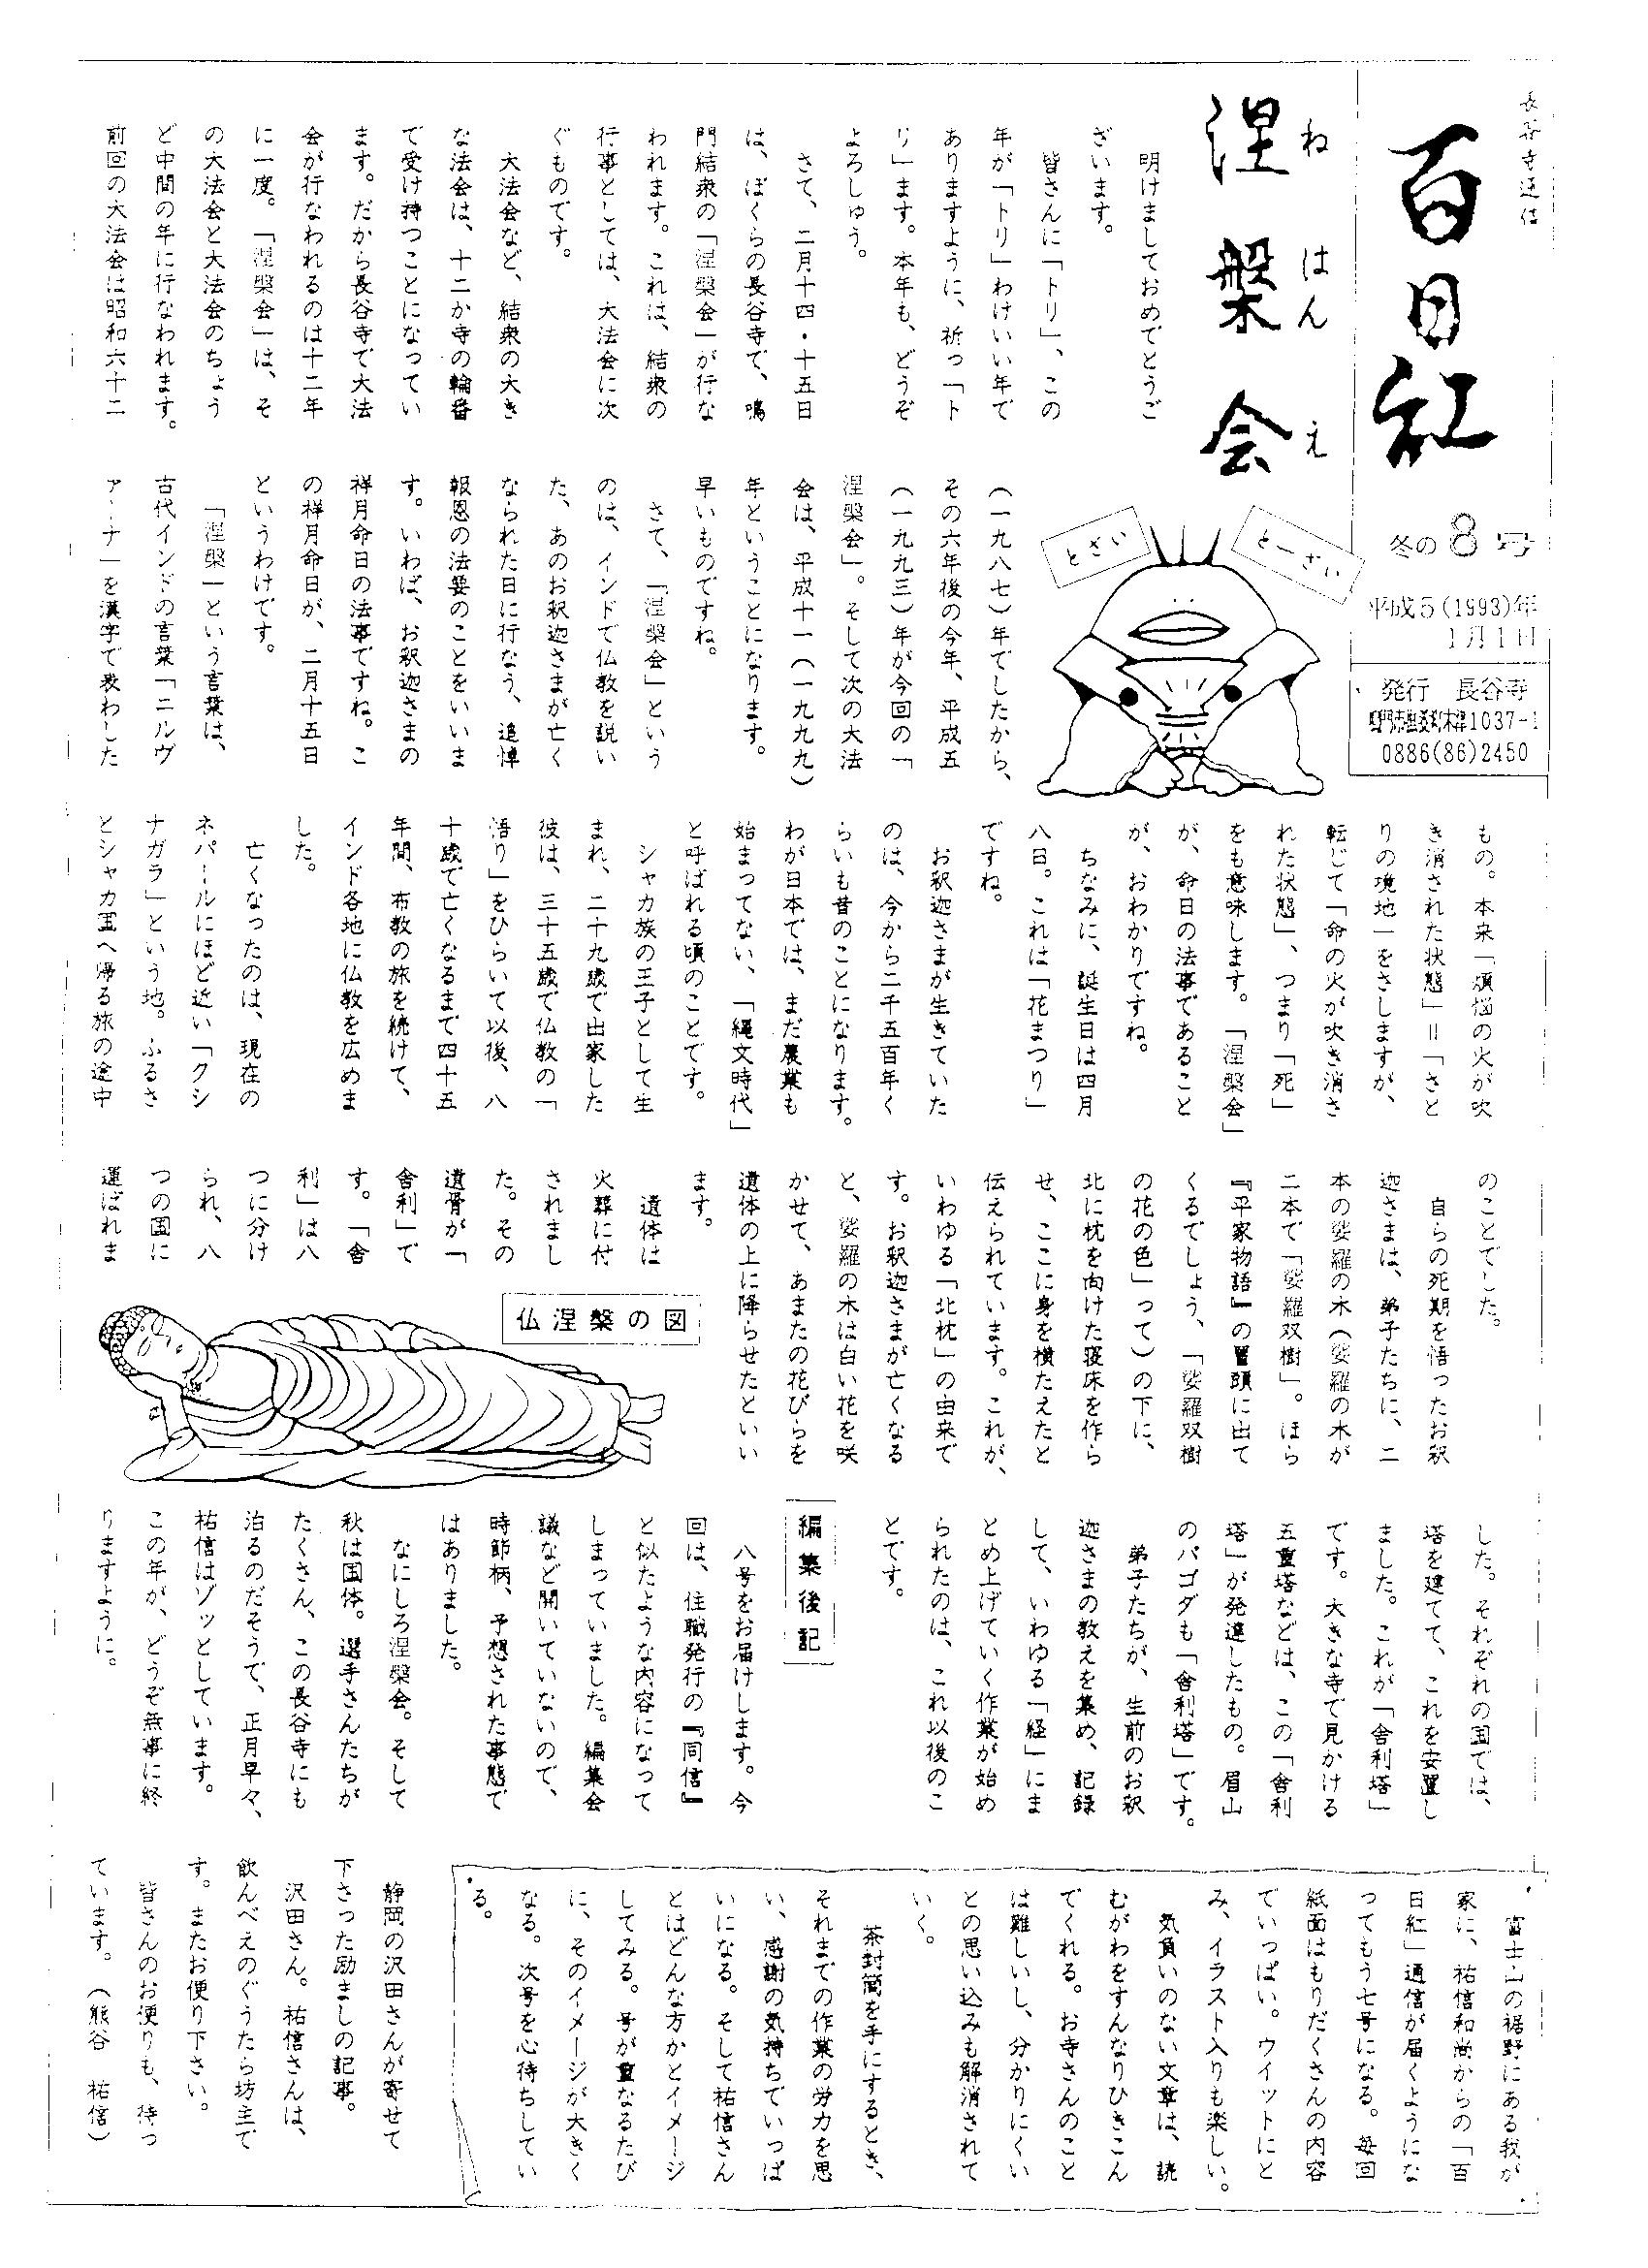 長谷寺通信
百日紅
冬の8号
平成5(1993)年
1月1日
発行 長谷寺
1037-1
0886(86)2450
涅槃会
ねはんえ
明けましておめでとうご
ざいます。
皆さんに「トリ」、この
年が「トリ」わけいい年で
ありますように、祈っ「ト
リ」ます。本年も、どうぞ
よろしゅう。
さて、二月十四・十五日
は、ぼくらの長谷寺で、鳴
門結衆の「涅槃会」が行な
われます。これは、結衆の
行事としては、大法会に次
ぐものです。
大法会など、結衆の大き
な法会は、十二か寺の輪番
で受け持つことになってい
ます。だから長谷寺で大法
会が行なわれるのは十二年
に一度。「涅槃会」は、そ
の大法会と大法会のちょう
ど中間の年に行なわれます。
前回の大法会は昭和六十二
とざい
とーざい
(一九八七)年でしたから、
その六年後の今年、平成五
(一九九三)年が今回の「
涅槃会」。そして次の大法
会は、平成十一(一九九九)
年ということになります。
早いものですね。
さて、「涅槃会」という
のは、インドで仏教を説い
た、あのお釈迦さまが亡く
なられた日に行なう、追悼
報恩の法要のことをいいま
す。いわば、お釈迦さまの
祥月命日の法事ですね。こ
の祥月命日が、二月十五日
というわけです。
「涅槃」という言葉は、
古代インドの言葉「ニルヴ
ァーナ」を漢字で表わした
もの。本来「煩悩の火が吹
き消された状態」=「さと
りの境地」をさしますが、
転じて「命の火が吹き消さ
れた状態」、つまり「死」
をも意味します。「涅槃会」
が、命日の法事であること
が、おわかりですね。
ちなみに、誕生日は四月
八日。これは「花まつり」
ですね。
お釈迦さまが生きていた
のは、今から二千五百年く
らいも昔のことになります。
わが日本では、まだ農業も
始まってない、「縄文時代」
と呼ばれる頃のことです。
シャカ族の王子として生
まれ、二十九歳で出家した
彼は、三十五歳で仏教の「
悟り」をひらいて以後、八
十歳で亡くなるまで四十五
年間、布教の旅を続けて、
インド各地に仏教を広めま
した。
亡くなったのは、現在の
ネパールにほど近い「クシ
ナガラ」という地。ふるさ
とシャカ国へ帰る旅の途中
のことでした。
自らの死期を悟ったお釈
迦さまは、弟子たちに、二
本の娑羅の木(娑羅の木が
二本で「娑羅双樹」。ほら
『平家物語』の冒頭に出て
くるでしょう、「娑羅双樹
の花の色」って)の下に、
北に枕を向けた寝床を作ら
せ、ここに身を横たえたと
伝えられています。これが、
いわゆる「北枕」の由来で
す。お釈迦さまが亡くなる
と、娑羅の木は白い花を咲
かせて、あまたの花びらを
遺体の上に降らせたといい
ます。
遺体は
火葬に付
されまし
た。その
遺骨が「
舎利」で
す。「舎
利」は八
つに分け
られ、八
つの国に
運ばれま
仏涅槃の図
した。それぞれの国では、
塔を建てて、これを安置し
ました。これが「舎利塔」
です。大きな寺で見かける
五重塔などは、この「舎利
塔」が発達したもの。眉山
のパゴダも「舎利塔」です。
弟子たちが、生前のお釈
迦さまの教えを集め、記録
して、いわゆる「経」にま
とめ上げていく作業が始め
られたのは、これ以後のこ
とです。
編集後記
八号をお届けします。今
回は、住職発行の『同信』
と似たような内容になって
しまっていました。編集会
議など開いていないので、
時節柄、予想された事態で
はありました。
なにしろ涅槃会。そして
秋は国体。選手さんたちが
たくさん、この長谷寺にも
泊るのだそうで、正月早々、
祐信はゾッとしています。
この年が、どうぞ無事に終
りますように。
富士山の裾野にある我が
家に、祐信和尚からの「百
日紅」通信が届くようにな
ってもう七号になる。毎回
紙面はもりだくさんの内容
でいっぱい。ウイットにと
み、イラスト入りも楽しい。
気負いのない文章は、読
むがわをすんなりひきこん
でくれる。お寺さんのこと
は難しいし、分かりにくい
との思い込みも解消されて
いく。
茶封筒を手にするとき、
それまでの作業の労力を思
い、感謝の気持ちでいっぱ
いになる。そして祐信さん
とはどんな方かとイメージ
してみる。号が重なるたび
に、そのイメージが大きく
なる。次号を心待ちしてい
る。
静岡の沢田さんが寄せて
下さった励ましの記事。
沢田さん。祐信さんは、
飲んべえのぐうたら坊主で
す。またお便り下さい。
皆さんのお便りも、待っ
ています。(熊谷 祐信)